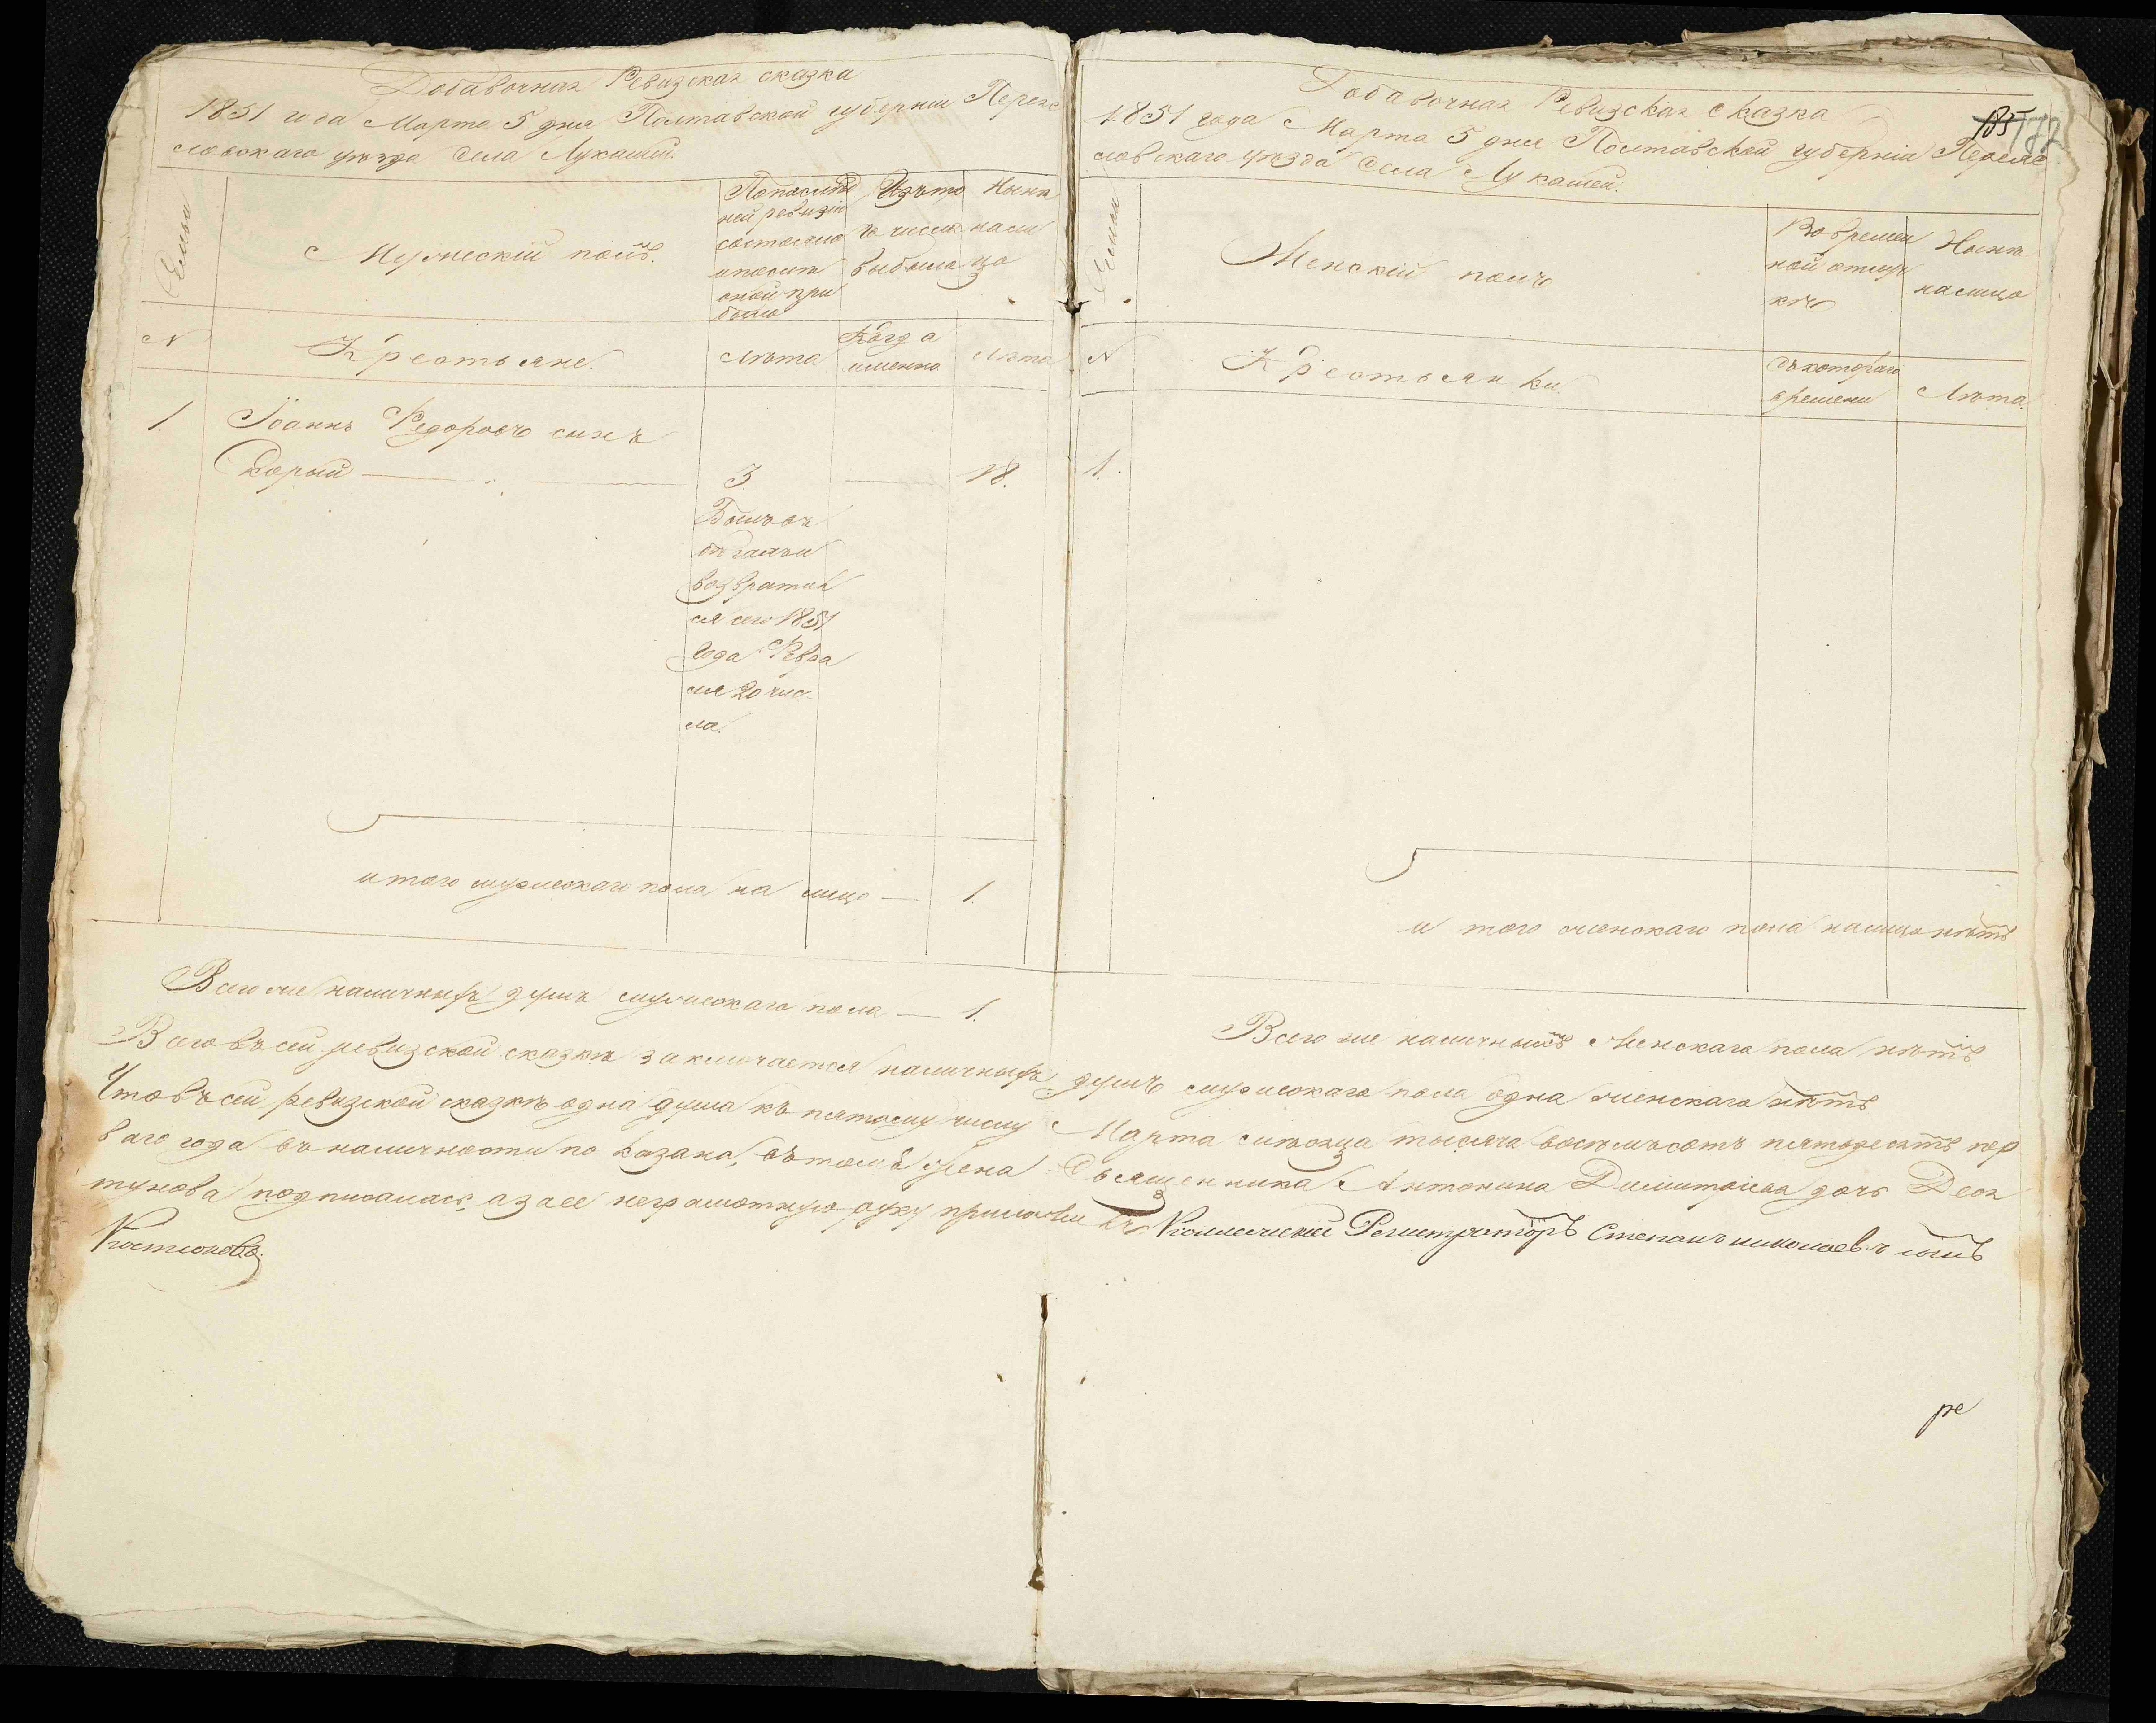 Добавочная Ревизская сказка
1851 года Марта 5 дня Полтавской губернiи Переяс
ловскаго уезда Села Лукашей.
Семьи
Мужескiй полъ.
По послѣд
ней ревизiи
состояло
и после
оной при
было
Изъ то
го числа
выбыло
Нынѣ
на ли
цо
N
Крестьяне.
Лѣта
Когда
именно
Лѣта
1 Iоаннъ Федоровъ сынъ
3 18.
Былъ въ
бѣгахъ и
возвратил
ся сего 1851
года Февра
ля 20 чис
ла.
итого мужескаго пола на лицо — 1.
Всего же наличныхъ душъ мужескаго пола — 1.
Добавочная Ревизская сказка
1851 года Марта 5 дня Полтавской губернiи Переяс
ловскаго уезда Села Лукашей.
185 172
Семьи
Женскiй полъ
Во времен
ной отлуч
кѣ
Нынѣ
на лицо
N
Крестьянки.
Съ котораго
времени
Лѣта.
1.
и того женскаго пола на лицо нѣтъ
Всего же наличныхъ женскаго пола нѣтъ
Всего въ сей ревизской сказкѣ заключается наличныхъ душъ мужескаго пола одна женскаго нѣтъ
Что въ сей ревизской сказкѣ одна душа къ пятому числу Марта мѣсяца тысяча восѣмъсотъ пятьдесятъ пер
ваго года въ наличности показана, въ томъ жена Священника Антонина Димитрiева дочь
подписалась, а за ее неграмотную руку приложилъ Коллежскiй Регистраторъ Степанъ николаевъ сынъ
ре